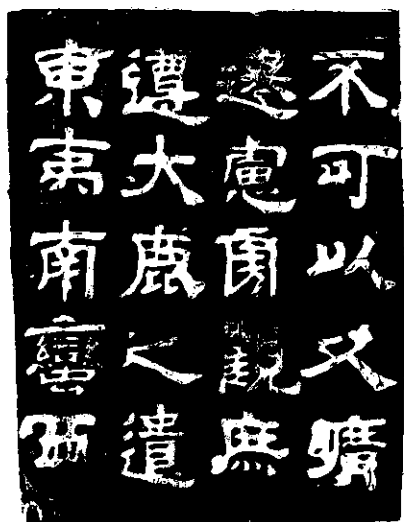 不可以久曠
遷慮旁觀庶
遵大鹿之遺
東夷南蠻西